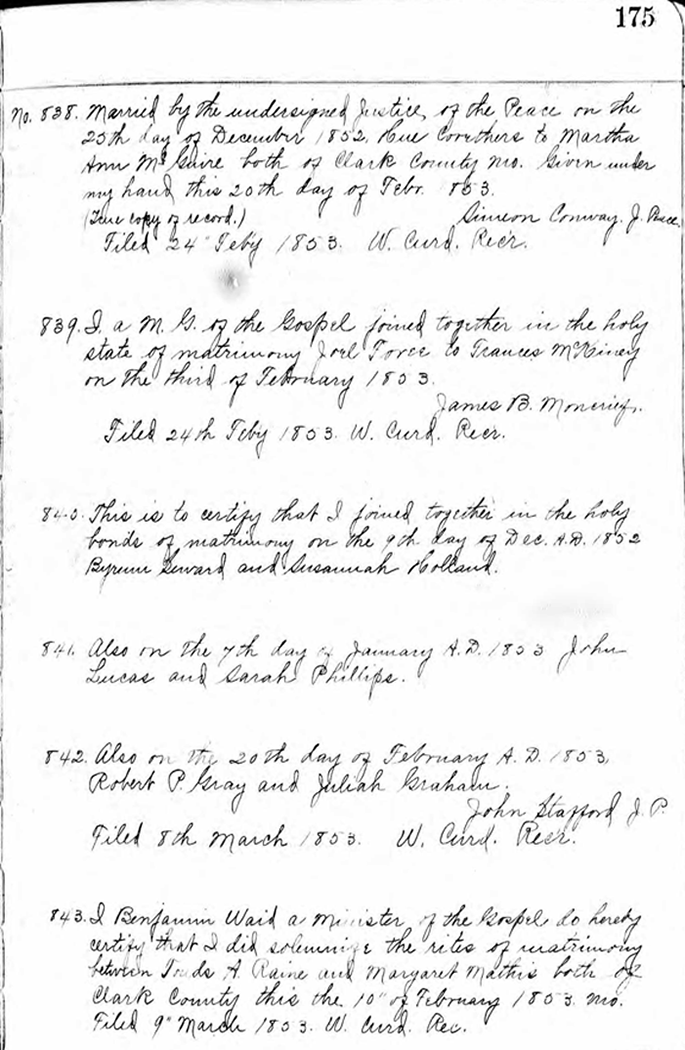 175
No. 838. Married by the undersigned Justice, of the Peace on the
25th day of December 1852, Hue Coruthers to Martha
Ann McGuire both of Clark County Mo. Given under
my hand this 20th day of Febr. 1853.
(True copy of record.) Simeon Conway. J. Peace.
Filed 24" Feb'y 1853. W. Curd. Rec'r.
839. I, a M. G. of the Gospel joined together in the holy
state of matrimony Joel to Frances McKiney
on the third of February 1853.
James B. Moncrief.
Filed 24th Feby 1853. W. Curd. Rec'r.
840. This is to certify that I joined together in the holy
bonds of matrimony on the 9th day of Dec. A.D. 1852
Seward and Susannah Holland.
841. Also on the 7th day of January A.D. 1853 John
Lucas and Sarah Phillips.
842. Also on the 20th day of February A.D. 1853,
Robert P. Gray and Juliah Graham.
John Stafford J. P.
Filed 8th March 1853. W. Curd. Rec'r.
843. I Benjamin Waid a Minister of the Gospel, do hereby
certify that I did solemnize the rites of matrimony
between A. Raine and Margaret Mathis both of
Clark County this the 10" of February 1853. Mo.
Filed 9" March 1853. W. Curd. Rec.